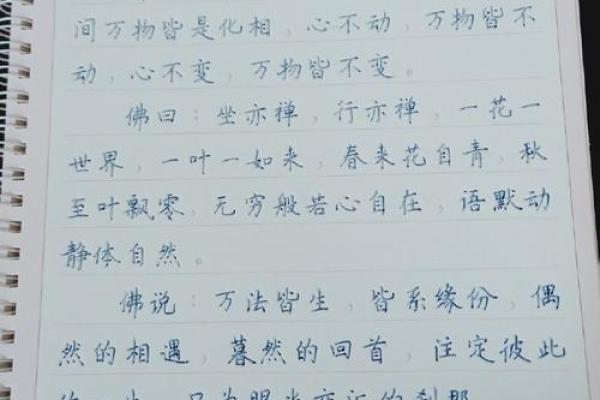 间万物皆是化相，心不动，万物皆不
动，心不变，万物皆不变。
佛曰：坐亦禅，行亦禅，一花一
世界，一叶一如来，春来花自青，秋
至叶飘零，无穷般若心自在，语默动
静体自然。
佛说：万法皆生，皆系缘份，偶
然的相遇，暮然的回首，注定彼此